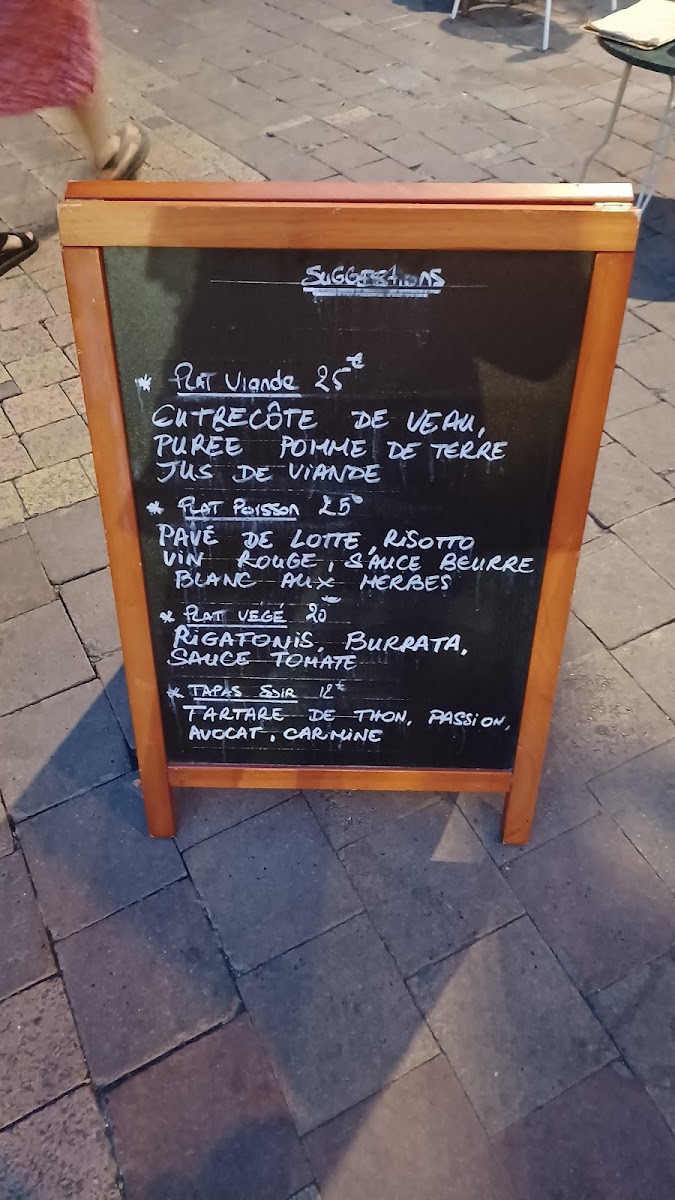 SUGGESTIONS
* PLAT Viande 25€
ENTRECÔTE DE VEAU,
PUREE POMME DE TERRE
JUS DE VIANDE
* PLAT POISSON 25€
PAVÉ DE LOTTE, RISOTTO
VIN ROUGE, SAUCE BEURRE
BLANC AUX HERBES
* PLAT VÉGÉ 20€
RIGATONIS, BURRATA,
SAUCE TOMATE
* TAPAS SOIR 12€
TARTARE DE THON, PASSION,
AVOCAT, CARMINE